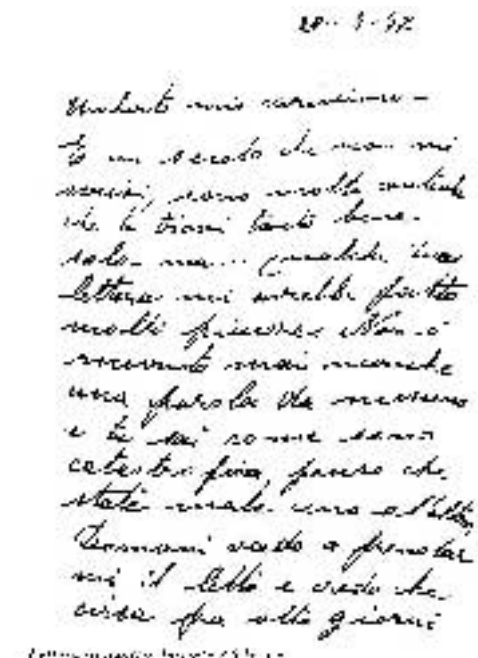 Umberto mio carissimo -
È un secolo che non mi
scrivi, sono molto
che ti trovi tanto bene
solo ma... qualche tua
lettera mi avrebbe fatto
molto piacere. Non ò
ricevuto mai neanche
una parola da nessuno
e tu sai come sono
fina, penso che
state male uno o l'altro,
Domani vado a prenotar
mi il letto e credo che
circa fra otto giorni